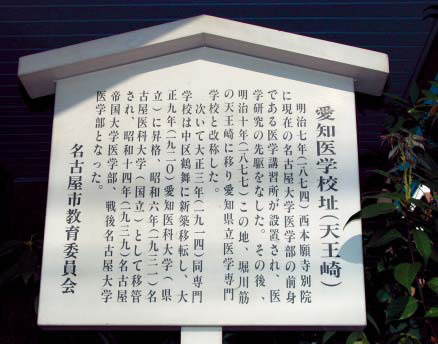 愛知医学校址(天王崎)
明治七年(一八七四)西本願寺別院
に現在の名古屋大学医学部の前身
である医学講習所が設置され、医
学研究の先駆をなした。その後、
明治十年(一八七七)この地、堀川筋
の天王崎に移り愛知県立医学専門
学校と改称した。
次いて大正三年(一九一四)同専門
学校は中区鶴舞に新築移転し、大
正九年(一九二〇)愛知医科大学(県
立)に昇格、昭和六年(一九三一)名
古屋医科大学(国立)として移管
され、昭和十四年(一九三九)名古屋
帝国大学医学部、戦後名古屋大学
医学部となった。
名古屋市教育委員会